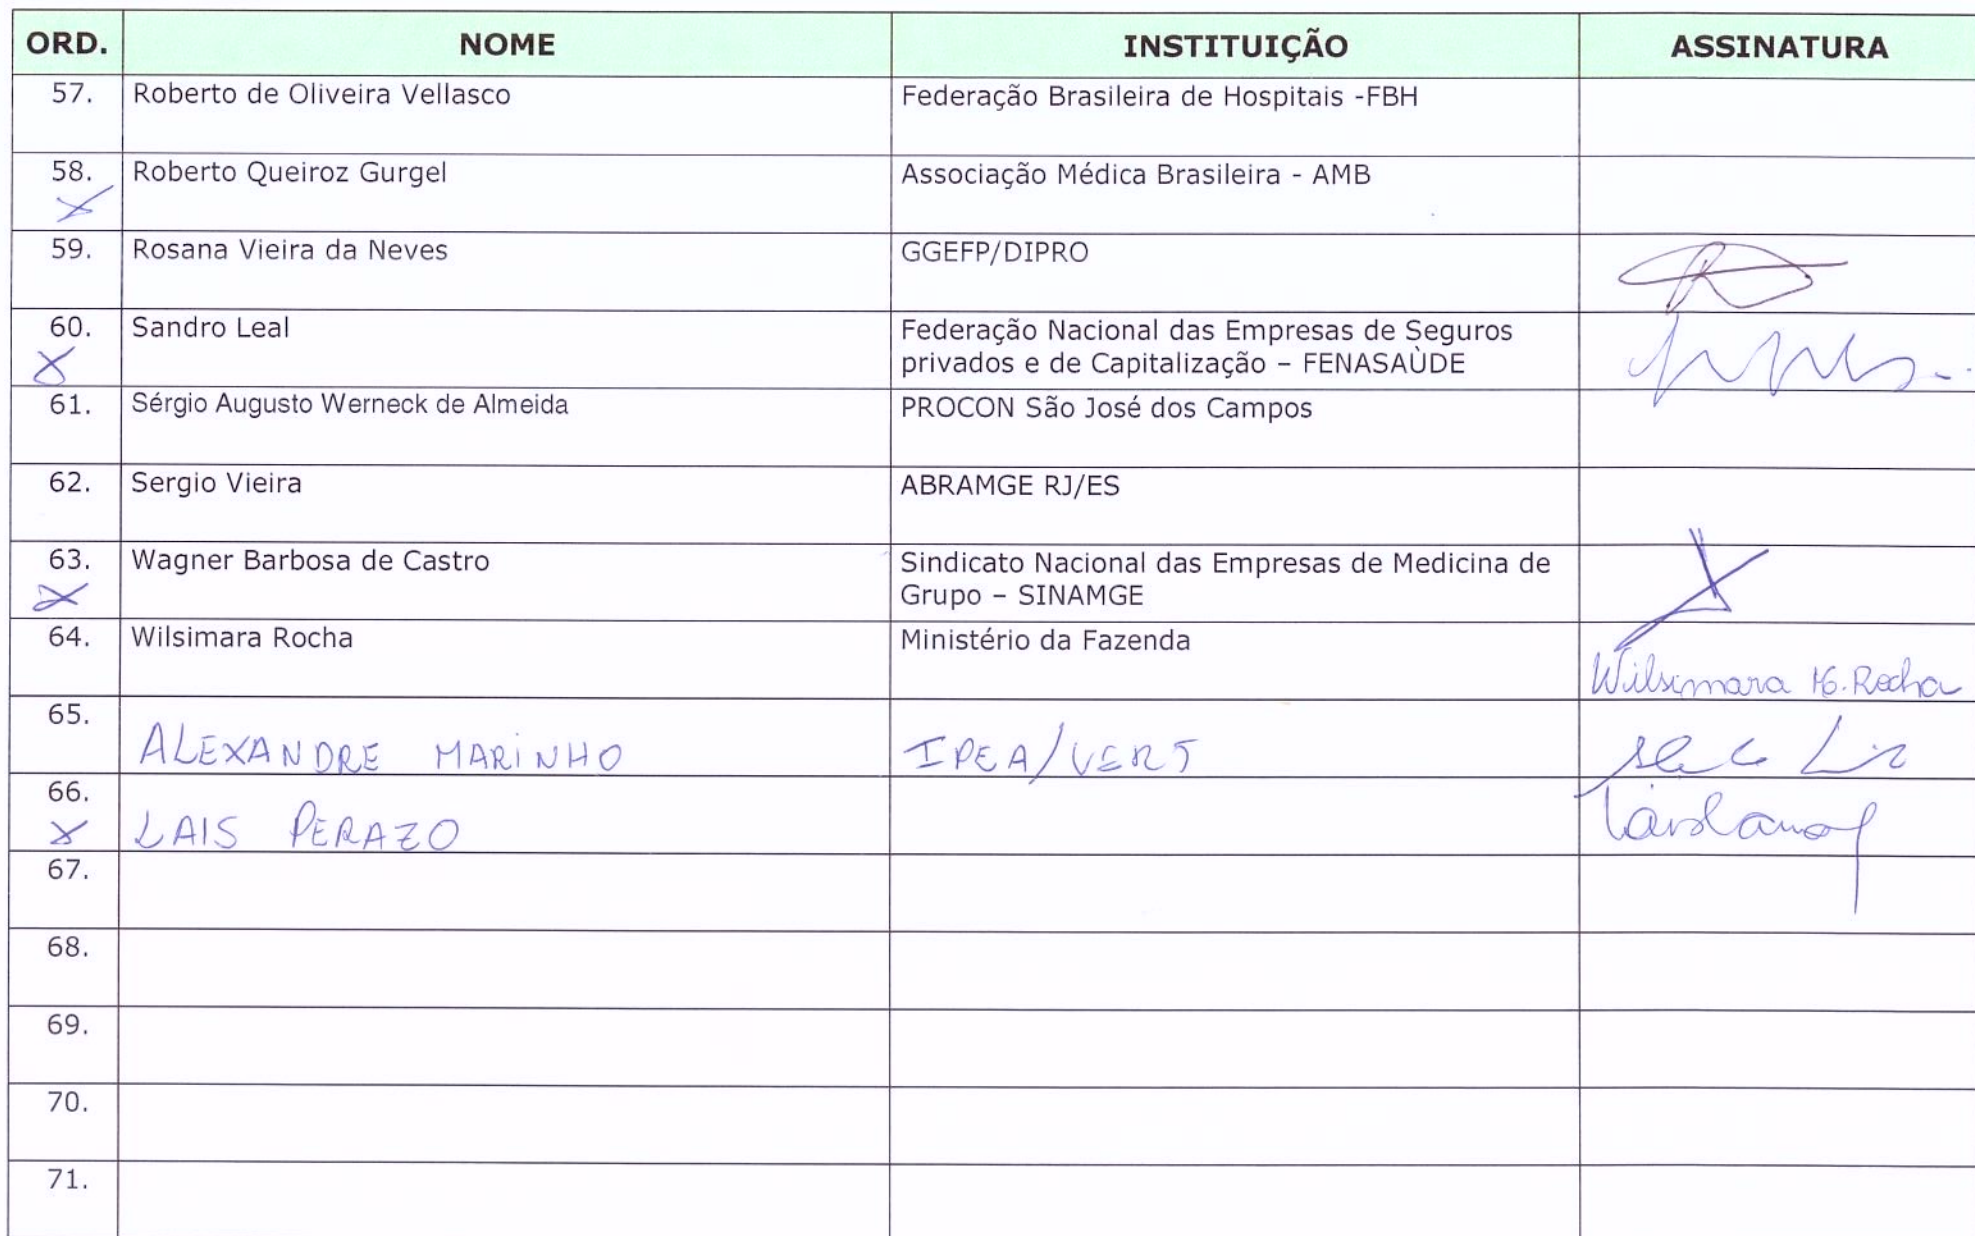 ORD. NOME INSTITUIÇÃO ASSINATURA
57. Roberto de Oliveira Vellasco Federação Brasileira de Hospitais -FBH
58. Roberto Queiroz Gurgel Associação Médica Brasileira - AMB
59. Rosana Vieira da Neves GGEFP/DIPRO
60. Sandro Leal Federação Nacional das Empresas de Seguros
privados e de Capitalização – FENASAÙDE
61. Sérgio Augusto Werneck de Almeida PROCON São José dos Campos
62. Sergio Vieira ABRAMGE RJ/ES
63. Wagner Barbosa de Castro Sindicato Nacional das Empresas de Medicina de
Grupo – SINAMGE
64. Wilsimara Rocha Ministério da Fazenda
Wilsimara M. Rocha
65.
ALEXANDRE MARINHO IPEA/UERJ
66.
LAIS PERAZO
67.
68.
69.
70.
71.